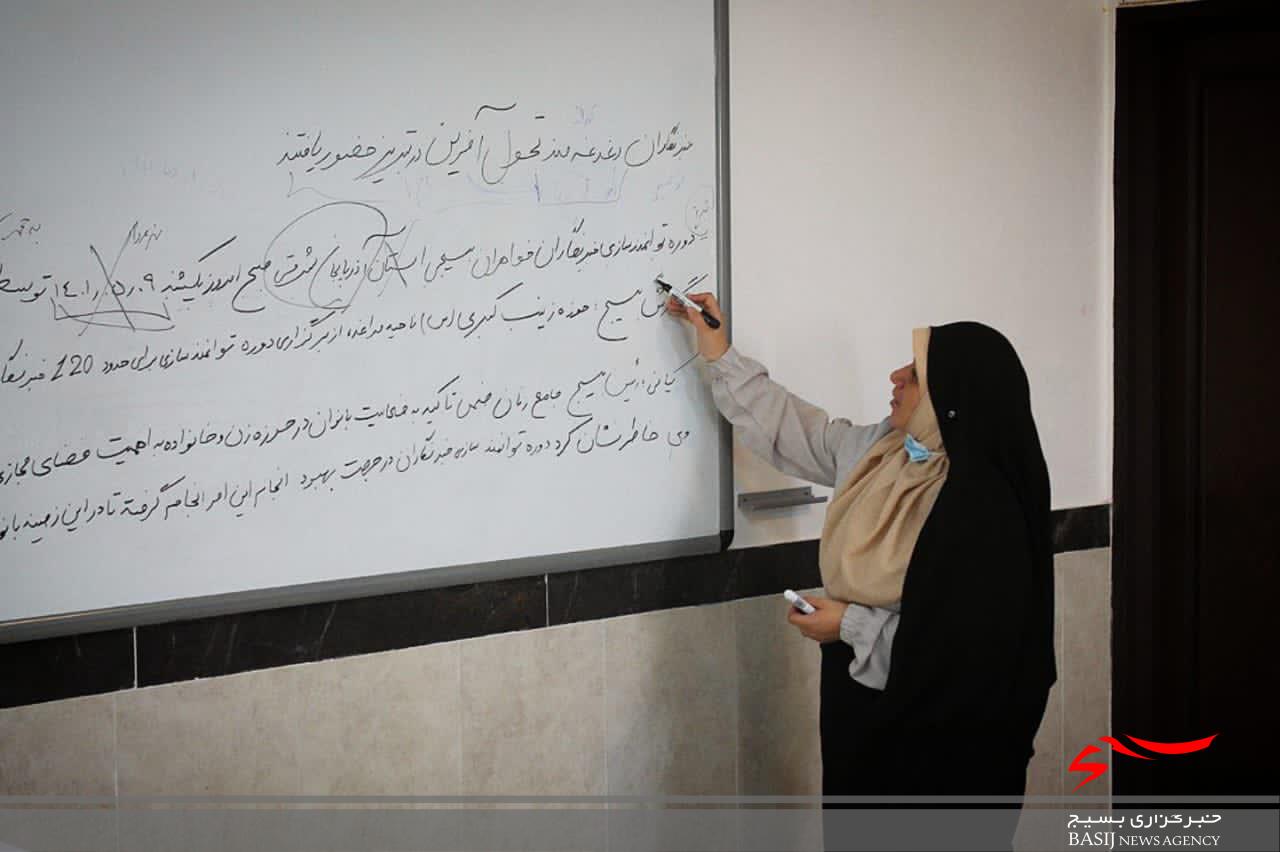 خبرنگاران دغدغه مند تحول آفرین در تبریز حضور یافتند
دوره توانمندسازی خبرنگاران خواهران بسیجی استان آذربایجان شرقی صبح امروز یکشنبه ۱۴۰۱٫۰۵٫۰۹ توسط
گزارش بسیج؛ حوزه زینب کبری (س) ناحیه مراغه، از برگزاری دوره توانمندسازی برای حدود 120
کیانی؛ رئیس بسیج جامع زنان ضمن تاکید به فعالیت بانوان در حوزه زن و خانواده به اهمیت فضای مجازی
وی خاطرنشان کرد دوره توانمند سازی خبرنگاران در جهت بهبود انجام این امر انجام گرفته تا در این زمینه
خبرگزاری بسیج
BASIJ NEWS AGENCY